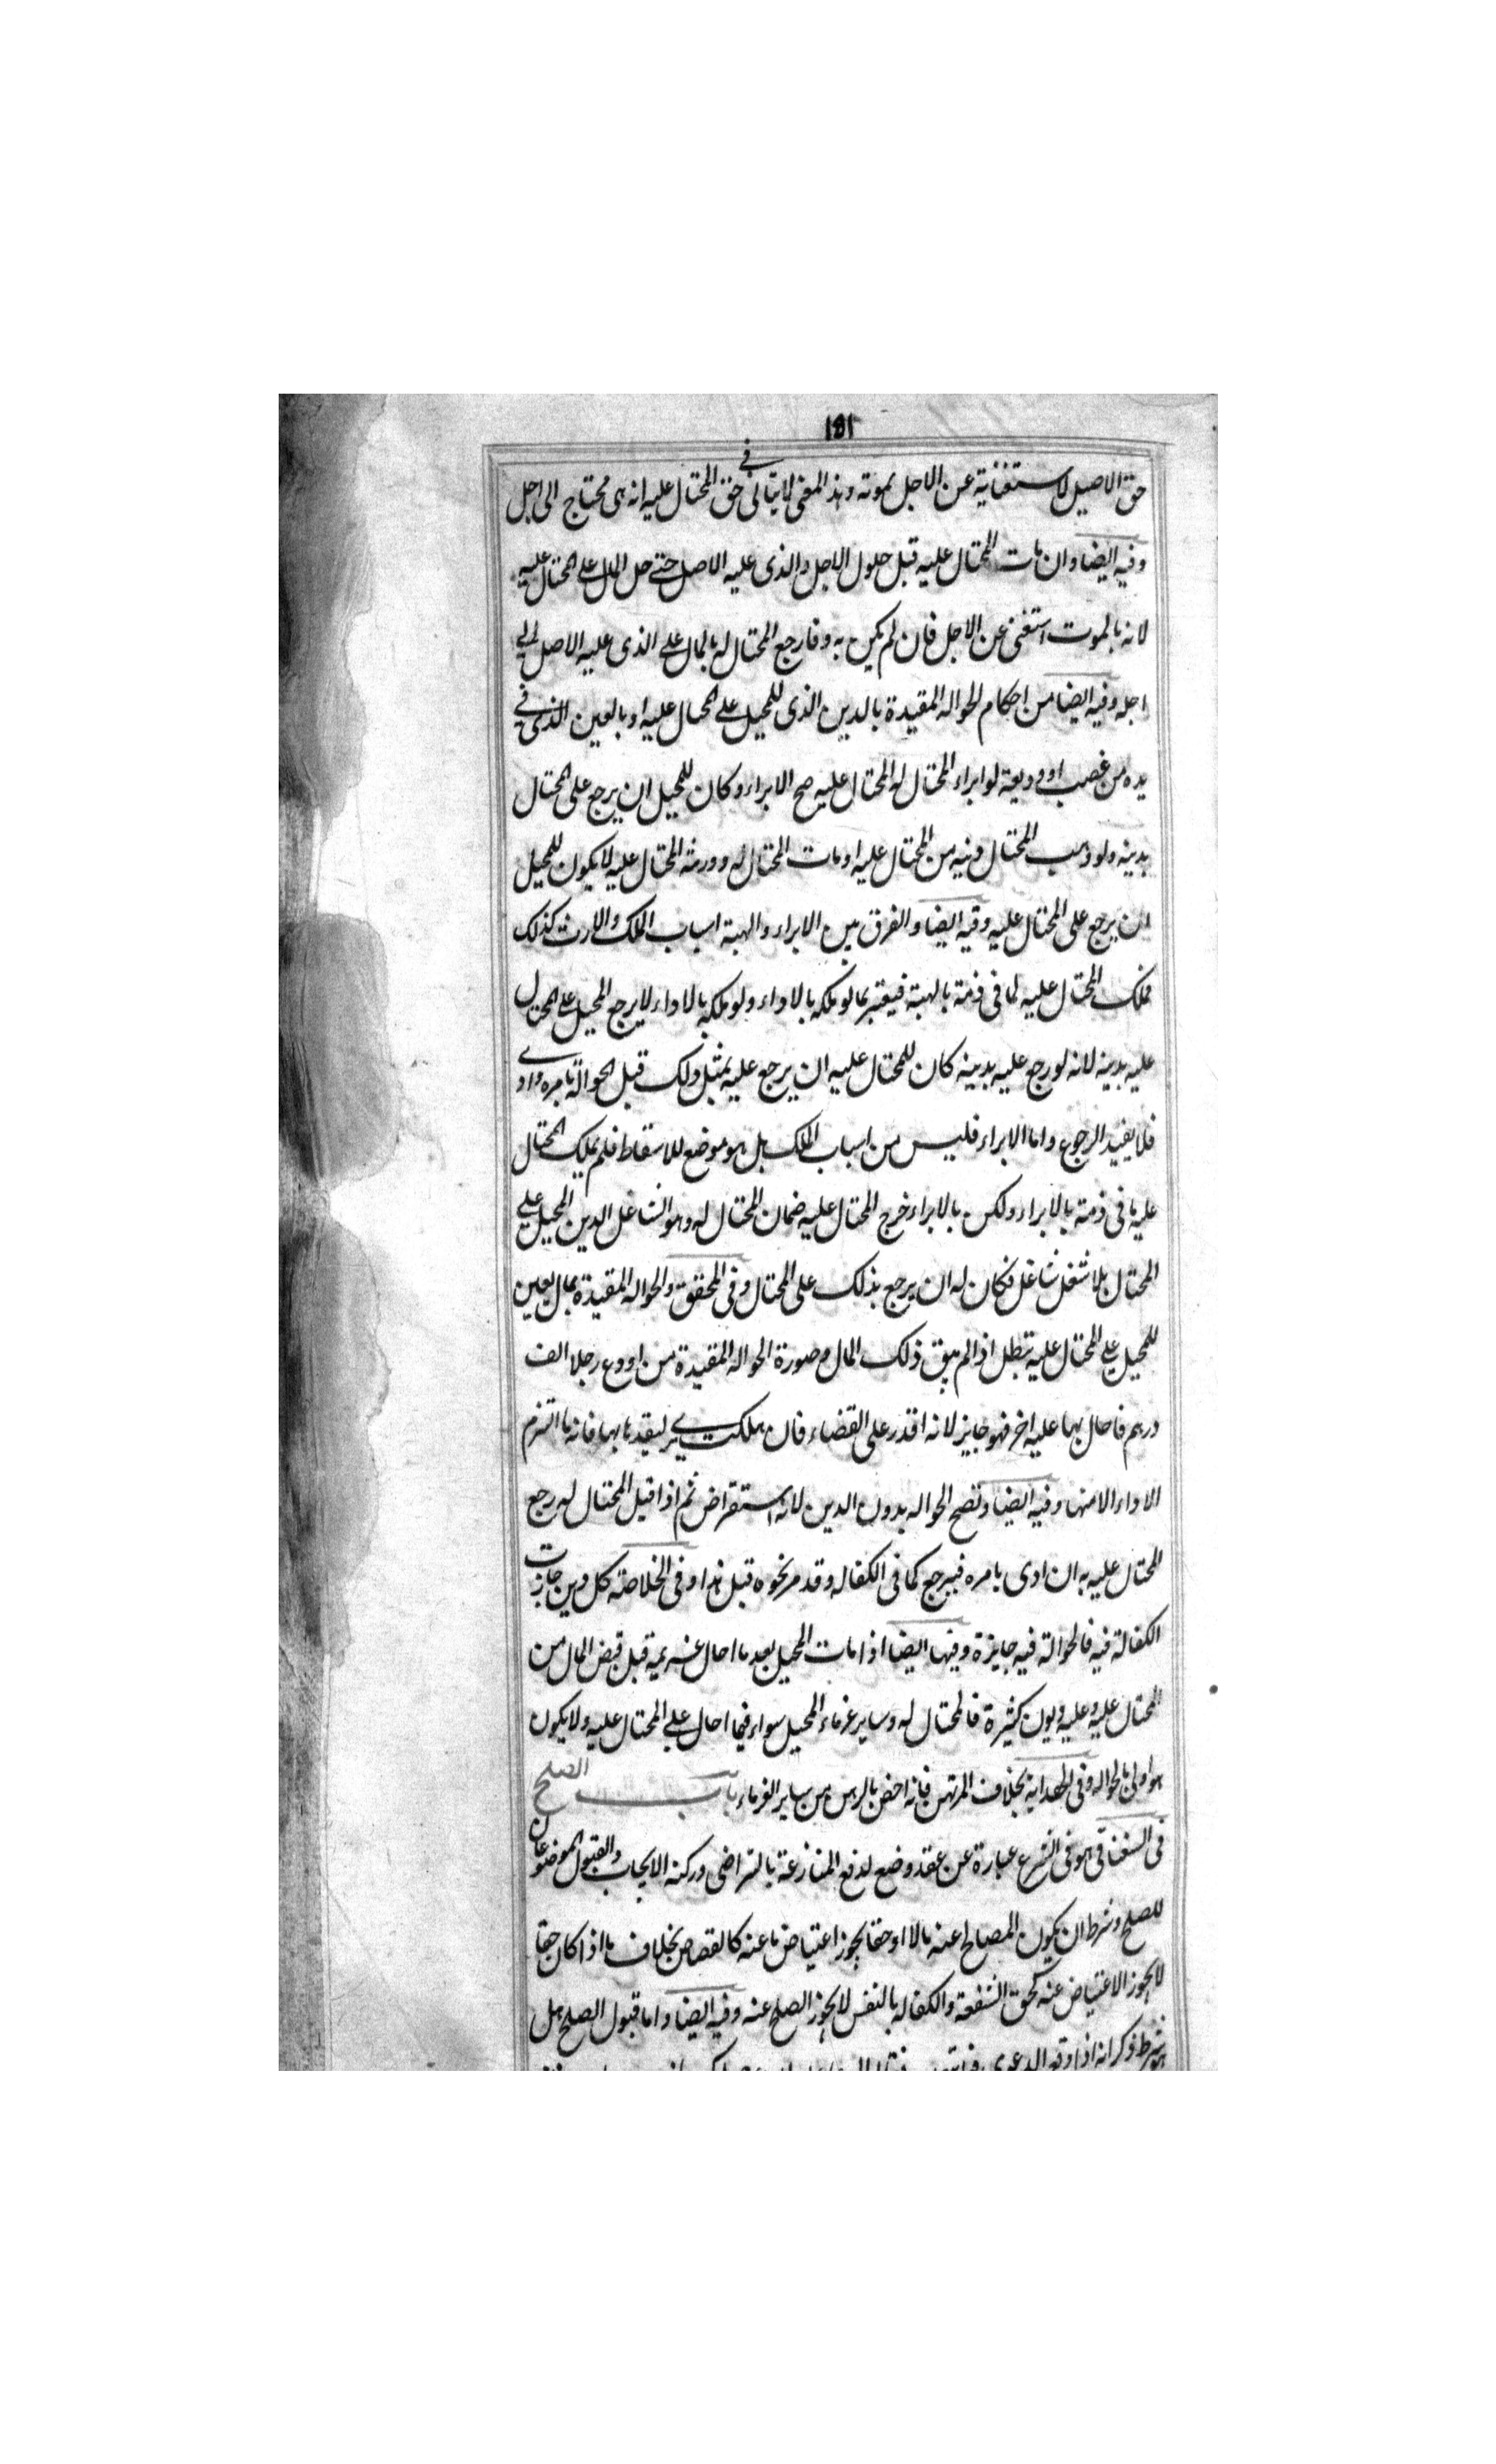 ١٥١
حق الاصيل لاستغنايه عن الاجل بموته وهذا المعنى لا يتاتى في حق المحتال عليه انه حى محتاج الى اجل
وفيه ايضا وان مات المحتال عليه قبل حلول الاجل والذى عليه الاصل حتى حل المال على المحتال عليه
لانه بالموت استغنى عن الاجل فان لم يكن به وفا رجع المحتال له بالمال على الذى عليه الاصل الى
اجله وفيه ايضا من احكام الحواله المقيدة بالدين الذى للمحيل على المحتال عليه او بالعين الذى في
يده من غصب او وديعة لو ابراء المحتال له المحتال عليه صح الابراء وكان للمحيل ان يرجع على المحتال
بدينه ولو وهب المحتال دينه من المحتال عليه او مات المحتال له وورثه المحتال عليه لا يكون للمحيل
ان يرجع على المحتال عليه وفيه ايضا والفرق بين الابراء والهبة اسباب الملك والارث كذلك
فملك المحتال عليه لما فى ذمته بالهبة فيعتبر بما لو ملكه بالاداء ولو ملكه بالاداء لا يرجع المحيل على المحتال
عليه بدينه لانه لو رجع عليه بدينه كان للمحتال عليه ان يرجع عليه بمثل ذلك قبل الحوالة بامره وادى
فلا يفيد الرجوع واما الابراء فليس من اسباب الملك بل هو موضع للاسقاط فلم يملك المحتال
عليه ما فى ذمته بالابراء ولكن بالابراء خرج المحتال عليه ضمان المحتال له وهو الشاغل الدين المحيل على
المحتال بلا شغل شاغل فكان له ان يرجع بذلك على المحتال وفى المحقق والحواله المقيدة بمال بعين
للمحيل على المحتال عليه تبطل اذا لم يبق ذلك المال وصورة الحواله المقيدة من اودع رجلا الف
درهم فاحال بها عليه اخر فهو جايز لانه اقدر على القضاء فان هلكت يبرى لتقيدها بها فانه ما التزم
الاداء الا منها وفيه ايضا وتصح الحواله بدون الدين لانه استقراض ثم اذا قبل المحتال له رجع
المحتال عليه به ان ادى بامره فيرجع كما فى الكفاله وقد مر نحوه قبل هذا وفى الخلاصة كل دين جازت
الكفالة فيه فالحوالة فيه جايزة وفيها ايضا اذا مات المحيل بعد ما احال غريمه قبل قبض المال من
المحتال عليه وعليه ديون كثيرة فالمحتال له وساير غرماء المحيل سواء فيما احال على المحتال عليه ولا يكون
هو اولى بالحواله وفى الهداية بخلاف المرتهن فانه اخص بالرهن من ساير الغرماء باب الصلح
فى السغناقى هو فى الشرع عبارة عن عقد وضع لدفع المنازعة بالتراضى وركنه الايجاب والقبول الموضوعان
للصلح وشرط ان يكون المصالح عنه مالا او حقا يجوز اعتياض ما عنه كالقصاص بخلاف ما اذا كان حقا
لا يجوز الاعتياض عنه كحق الشفعة والكفاله بالنفس لا يجوز الصلح عنه وفيه ايضا واما قبول الصلح هل
هو شرط ذكر انه اذا وقع الدعوى